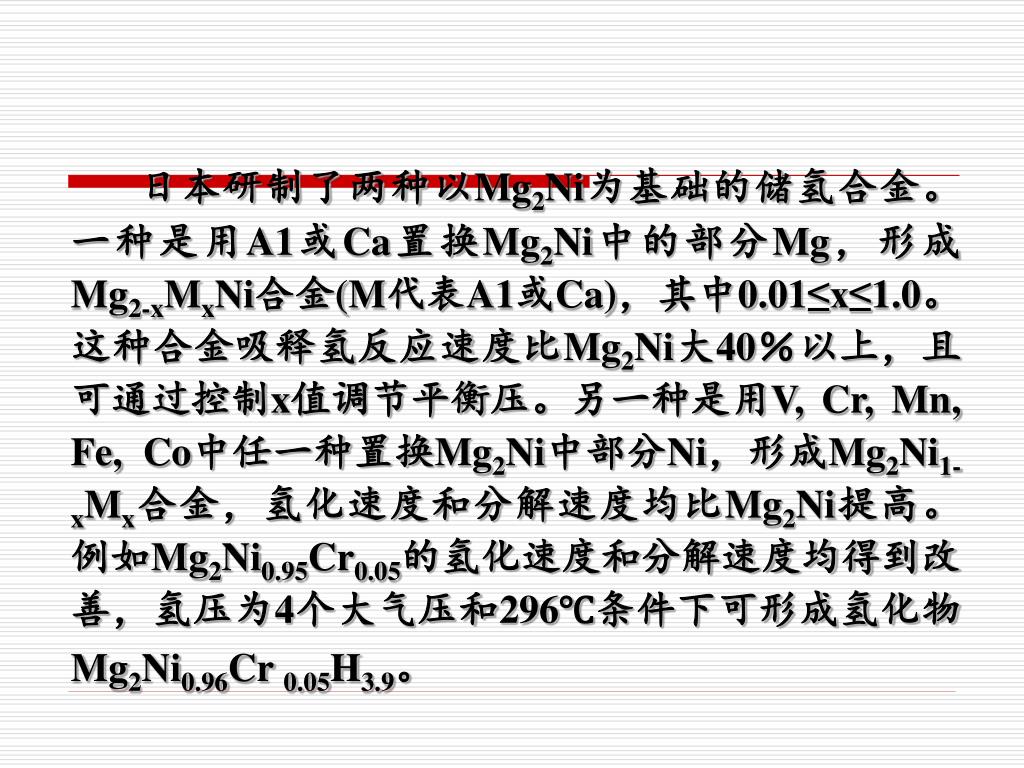 日本研制了两种以Mg₂Ni为基础的储氢合金。
一种是用A1或Ca置换Mg₂Ni中的部分Mg，形成
Mg₂₋ₓMₓNi合金(M代表A1或Ca)，其中0.01≤x≤1.0。
这种合金吸释氢反应速度比Mg₂Ni大40％以上，且
可通过控制x值调节平衡压。另一种是用V, Cr, Mn,
Fe, Co中任一种置换Mg₂Ni中部分Ni，形成Mg₂Ni₁₋
ₓMₓ合金，氢化速度和分解速度均比Mg₂Ni提高。
例如Mg₂Ni₀.₉₅Cr₀.₀₅的氢化速度和分解速度均得到改
善，氢压为4个大气压和296℃条件下可形成氢化物
Mg₂Ni₀.₉₆Cr ₀.₀₅H₃.₉。